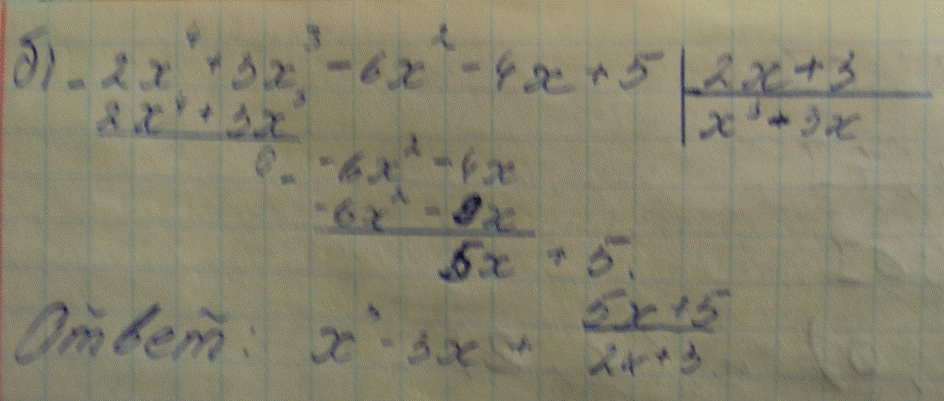 б) - 2x⁴ + 3x³ - 6x² - 4x + 5 | 2x + 3
2x⁴ + 3x³ | x³ - 3x
0 - -6x² - 4x
-6x² - 9x
5x + 5.
Ответ: x³ - 3x + (5x+5)/(2x+3)